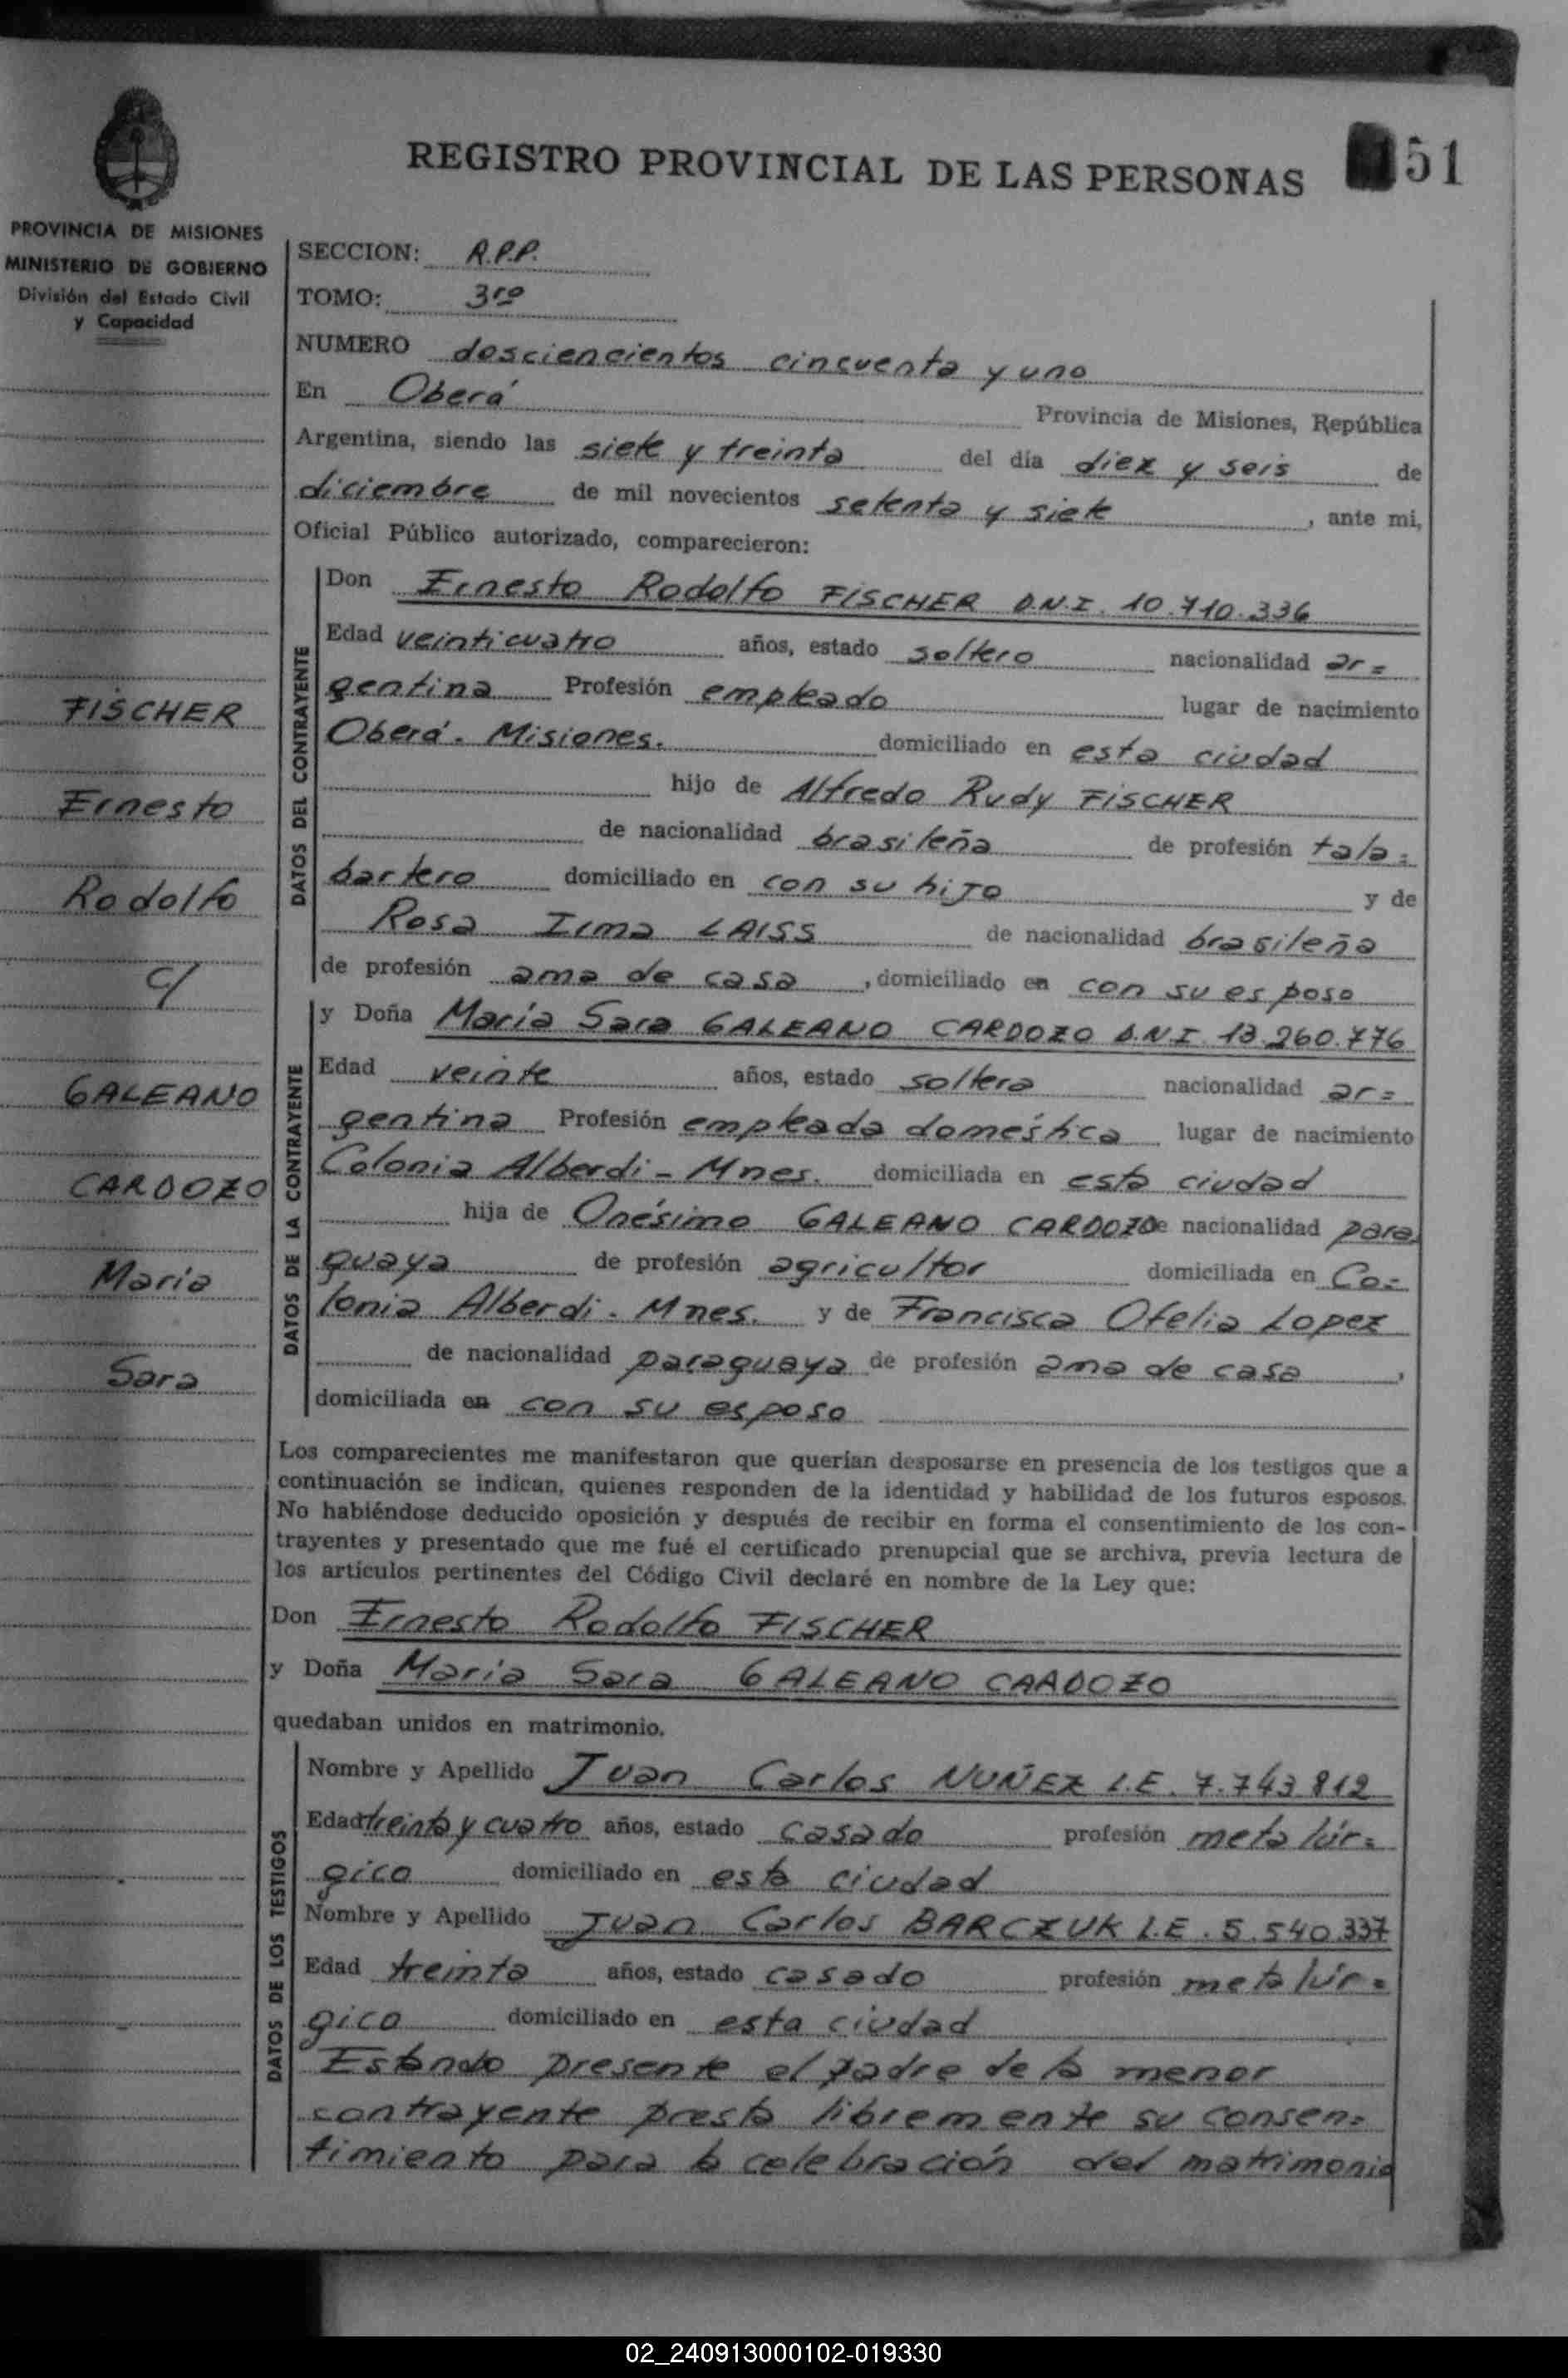 REGISTRO PROVINCIAL DE LAS PERSONAS 51
PROVINCIA DE MISIONES
MINISTERIO DE GOBIERNO
División del Estado Civil
y Capacidad
SECCION: R.P.P.
TOMO: 3ro
NUMERO dosciencientos cincuenta y uno
En Oberá Provincia de Misiones, República
Argentina, siendo las siete y treinta del día diez y seis de
diciembre de mil novecientos setenta y siete, ante mi,
Oficial Público autorizado, comparecieron:
DATOS DEL CONTRAYENTE
Don Ernesto Rodolfo FISCHER D.N.I. 10.710.336
Edad veinticuatro años, estado soltero nacionalidad ar=
gentina Profesión empleado lugar de nacimiento
Oberá. Misiones. domiciliado en esta ciudad
hijo de Alfredo Rudy FISCHER
de nacionalidad brasileña de profesión tala=
bartero domiciliado en con su hijo y de
Rosa Irma LAISS de nacionalidad brasileña
de profesión ama de casa, domiciliado en con su esposo
DATOS DE LA CONTRAYENTE
y Doña María Sara GALEANO CARDOZO D.N.I 13.260.776
Edad veinte años, estado soltera nacionalidad ar=
gentina Profesión empleada doméstica lugar de nacimiento
Colonia Alberdi - Mnes. domiciliada en esta ciudad
hija de Onésimo GALEANO CARDOZO de nacionalidad para
guaya de profesión agricultor domiciliada en Co=
lonia Alberdi. Mnes. y de Francisca Ofelia Lopez
de nacionalidad paraguaya de profesión ama de casa,
domiciliada en con su esposo
Los comparecientes me manifestaron que querían desposarse en presencia de los testigos que a
continuación se indican, quienes responden de la identidad y habilidad de los futuros esposos.
No habiéndose deducido oposición y después de recibir en forma el consentimiento de los con-
trayentes y presentado que me fué el certificado prenupcial que se archiva, previa lectura de
los artículos pertinentes del Código Civil declaré en nombre de la Ley que:
Don Ernesto Rodolfo FISCHER
y Doña María Sara GALEANO CARDOZO
quedaban unidos en matrimonio.
DATOS DE LOS TESTIGOS
Nombre y Apellido Juan Carlos NUÑEZ L.E. 7.743.812
Edad treinta y cuatro años, estado casado profesión metalúr=
gico domiciliado en esta ciudad
Nombre y Apellido Juan Carlos BARCZUK L.E. 5.540.337
Edad treinta años, estado casado profesión metalúr=
gico domiciliado en esta ciudad
Estando presente el padre de la menor
contrayente presta libremente su consen=
timiento para la celebración del matrimonio
FISCHER
Ernesto
Rodolfo
c/
GALEANO
CARDOZO
María
Sara
02_240913000102-019330